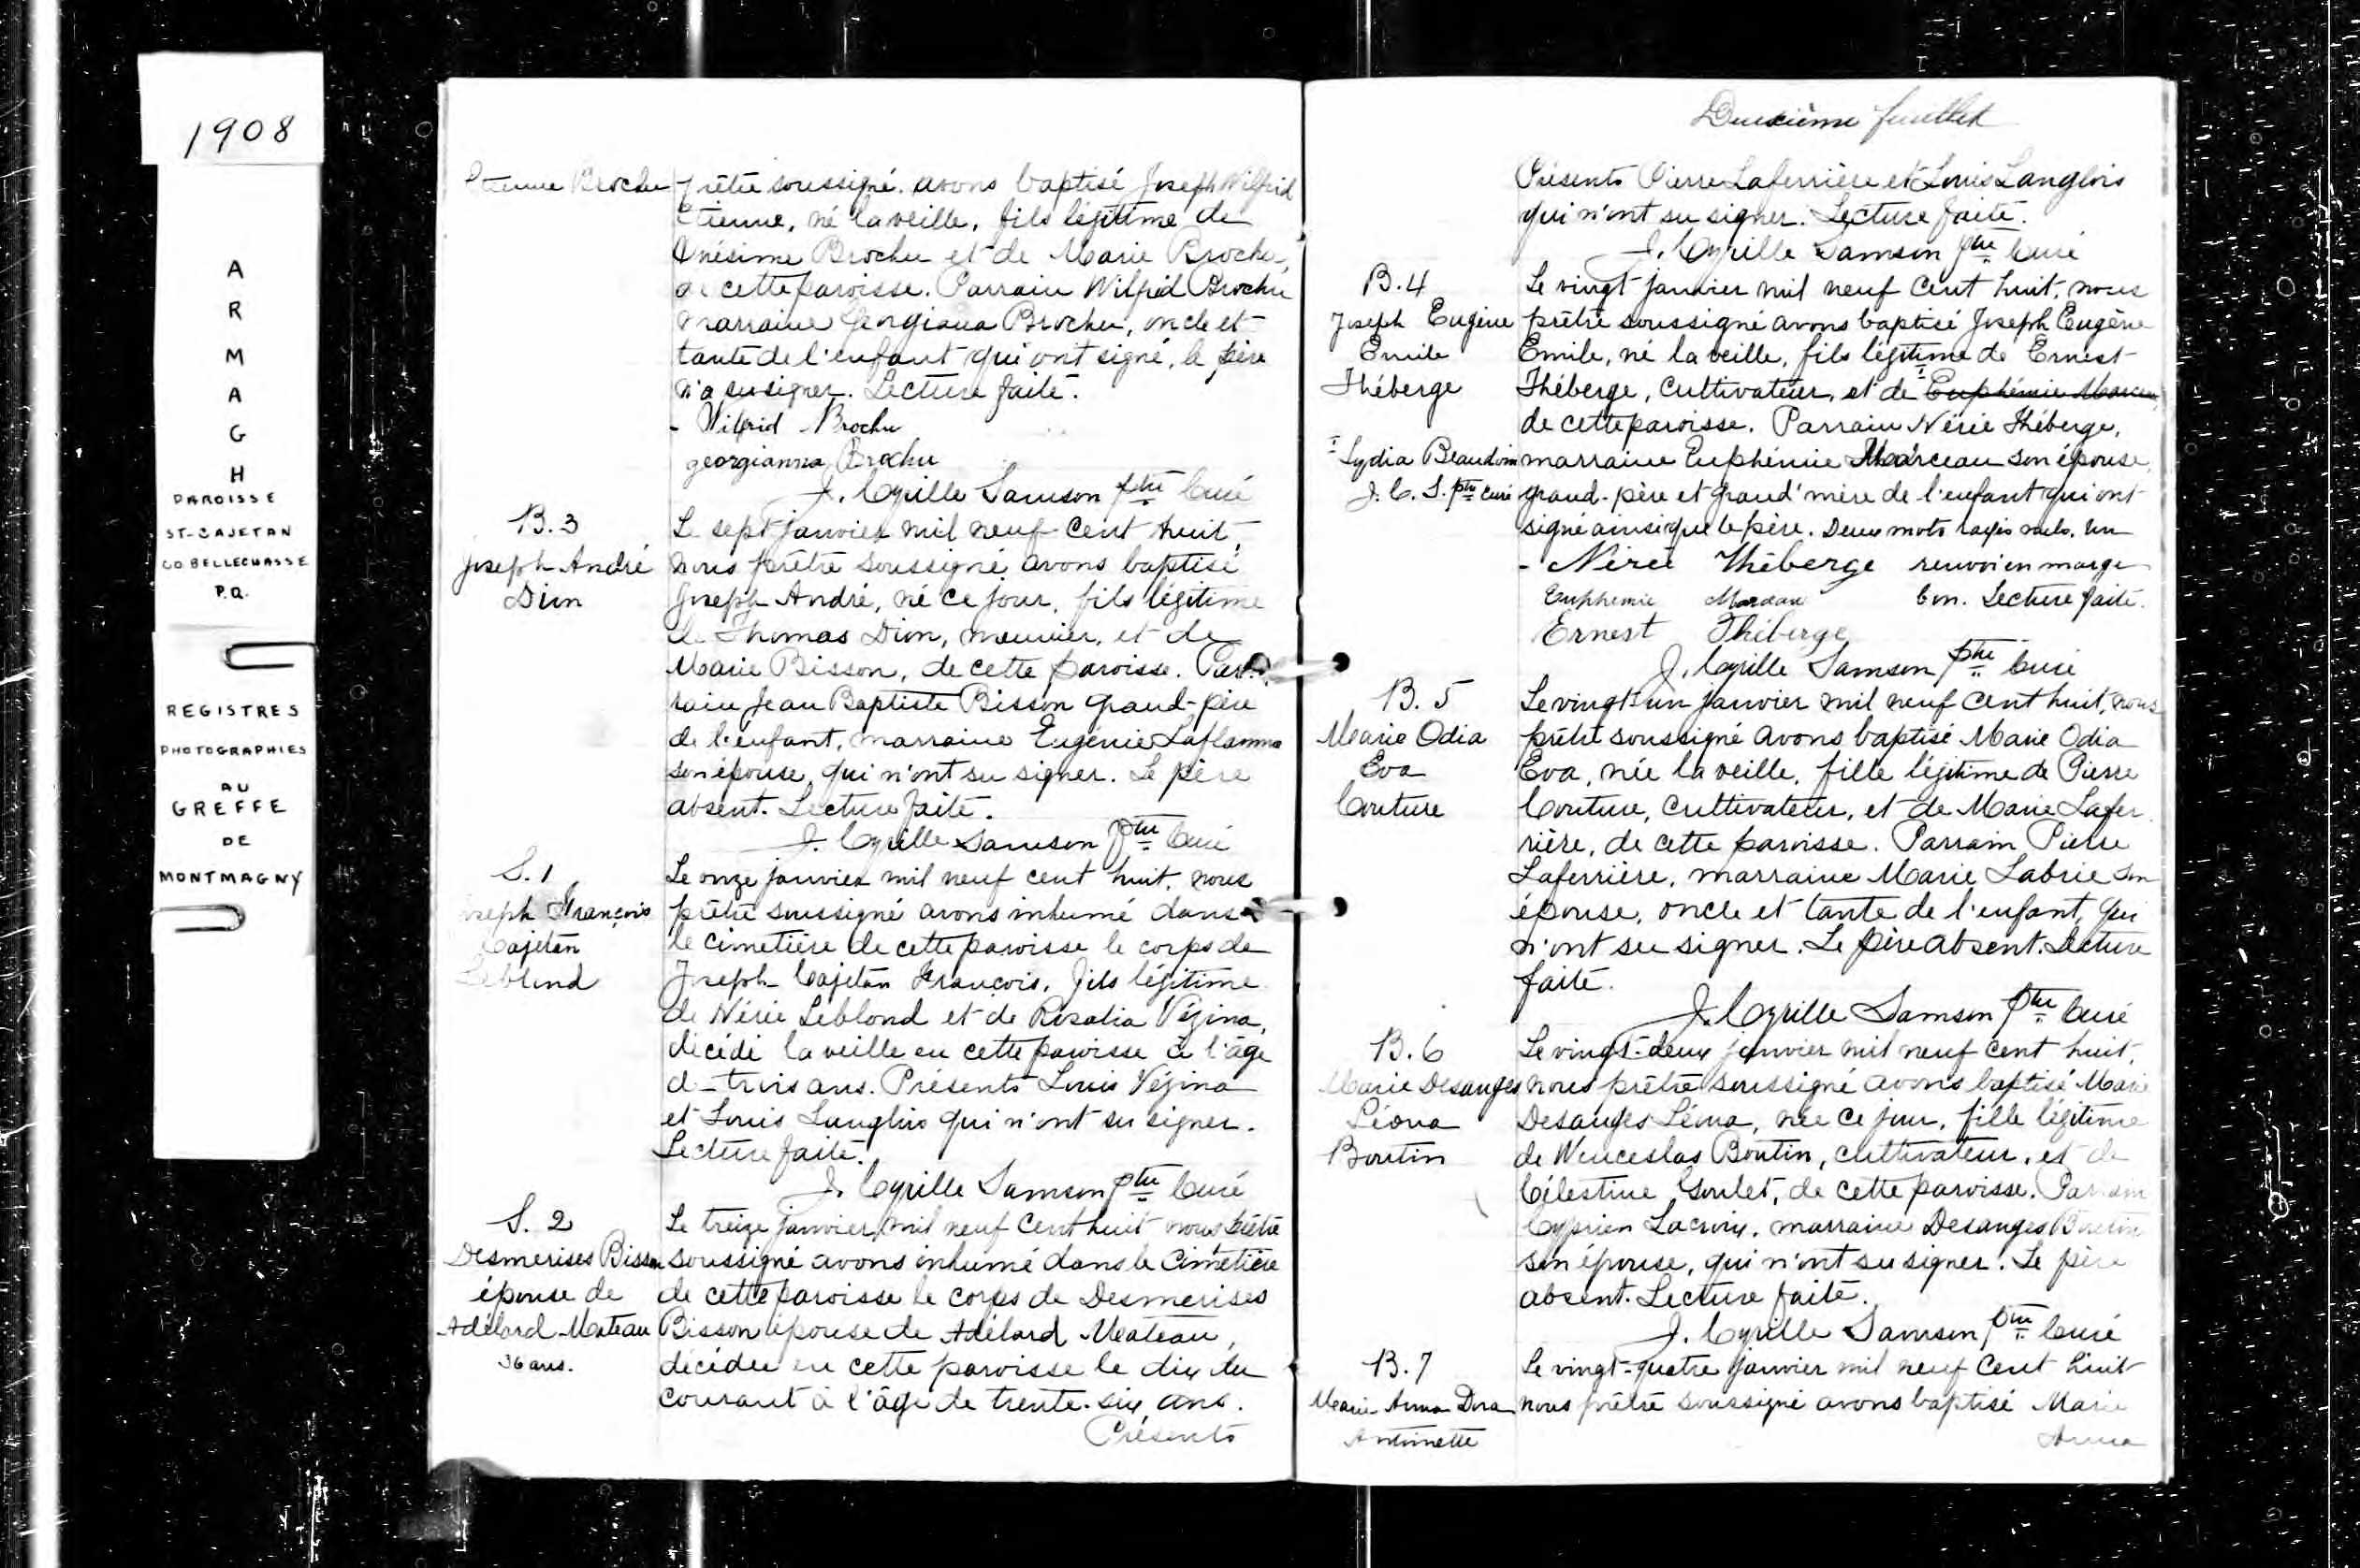 1908
A
R
M
A
G
H
PAROISSE
ST-CAJETAN
CO BELLECHASSE
P.Q.
REGISTRES
PHOTOGRAPHIES
AU
GREFFE
DE
MONTMAGNY
Etienne Brochu
prêtre soussigné avons baptisé Joseph Wilfrid
Etienne, né la veille, fils légitime de
Onésime Brochu et de Marie Brochu,
de cette paroisse. Parrain Wilfrid Brochu
marraine Georgiana Brochu, oncle et
tante de l'enfant qui ont signé, le père
n'a su signer. Lecture faite.
- Wilfrid Brochu
georgianna Brochu
J. Cyrille Samson ptre Curé
B.3
Joseph André
Dion
Le sept janvier mil neuf cent huit,
nous prêtre soussigné avons baptisé
Joseph André, né ce jour, fils légitime
de Thomas Dion, meunier, et de
Marie Bisson, de cette paroisse. Par-
rain Jean Baptiste Bisson grand-père
de l'enfant, marraine Eugénie Laflamme
son épouse, qui n'ont su signer. Le père
absent. Lecture faite.
J. Cyrille Samson ptre Curé
S.1
Joseph François
Cajetan
Leblond
Le onze janvier mil neuf cent huit, nous
prêtre soussigné avons inhumé dans
le cimetière de cette paroisse le corps de
Joseph Cajetan François, fils légitime
de Nérée Leblond et de Rosalia Vézina,
décédé la veille en cette paroisse à l'âge
de trois ans. Présents Louis Vézina
et Louis Langlois qui n'ont su signer.
Lecture faite.
J. Cyrille Samson ptre Curé
S.2
Desmerises Bisson
épouse de
Adélard Mateau
36 ans.
Le treize janvier mil neuf cent huit nous prêtre
soussigné avons inhumé dans le cimetière
de cette paroisse le corps de Desmerises
Bisson épouse de Adélard Mateau,
décédée en cette paroisse le dix du
courant à l'âge de trente-six ans.
Présents
Deuxième feuillet
Présents Pierre Laferrière et Louis Langlois
qui n'ont su signer. Lecture faite.
J. Cyrille Samson ptre Curé
B.4
Joseph Eugène
Emile
Théberge
Le vingt janvier mil neuf cent huit, nous
prêtre soussigné avons baptisé Joseph Eugène
Emile, né la veille, fils légitime de Ernest
Théberge, cultivateur, et de Euphémie Marceau,
de cette paroisse. Parrain Nérée Théberge,
Lydia Beaudoin
J. C. S. ptre curé
marraine Euphémie Marceau son épouse,
grand-père et grand'mère de l'enfant qui ont
signé ainsi que le père. Deux mots rayés nuls. Un
- Nérée Théberge renvoi en marge
Euphemie Marceau bon. Lecture faite.
Ernest Théberge
J. Cyrille Samson ptre Curé
B.5
Marie Odia
Eva
Couture
Le vingt un janvier mil neuf cent huit, nous
prêtre soussigné avons baptisé Marie Odia
Eva, née la veille, fille légitime de Pierre
Couture, cultivateur, et de Marie Lafer-
rière, de cette paroisse. Parrain Pierre
Laferrière, marraine Marie Labrie son
épouse, oncle et tante de l'enfant, qui
n'ont su signer. Le père absent. Lecture
faite.
J. Cyrille Samson ptre Curé
B.6
Marie Desanges
Léona
Boutin
Le vingt-deux janvier mil neuf cent huit,
nous prêtre soussigné avons baptisé Marie
Desanges Léona, née ce jour, fille légitime
de Wenceslas Boutin, cultivateur, et de
Célestine Goulet, de cette paroisse. Parrain
Cyprien Lacroix, marraine Desanges Boutin
son épouse, qui n'ont su signer. Le père
absent. Lecture faite.
J. Cyrille Samson ptre Curé
B.7
Marie Anna Dora
Antoinette
Le vingt-quatre janvier mil neuf cent huit
nous prêtre soussigné avons baptisé Marie
Anna